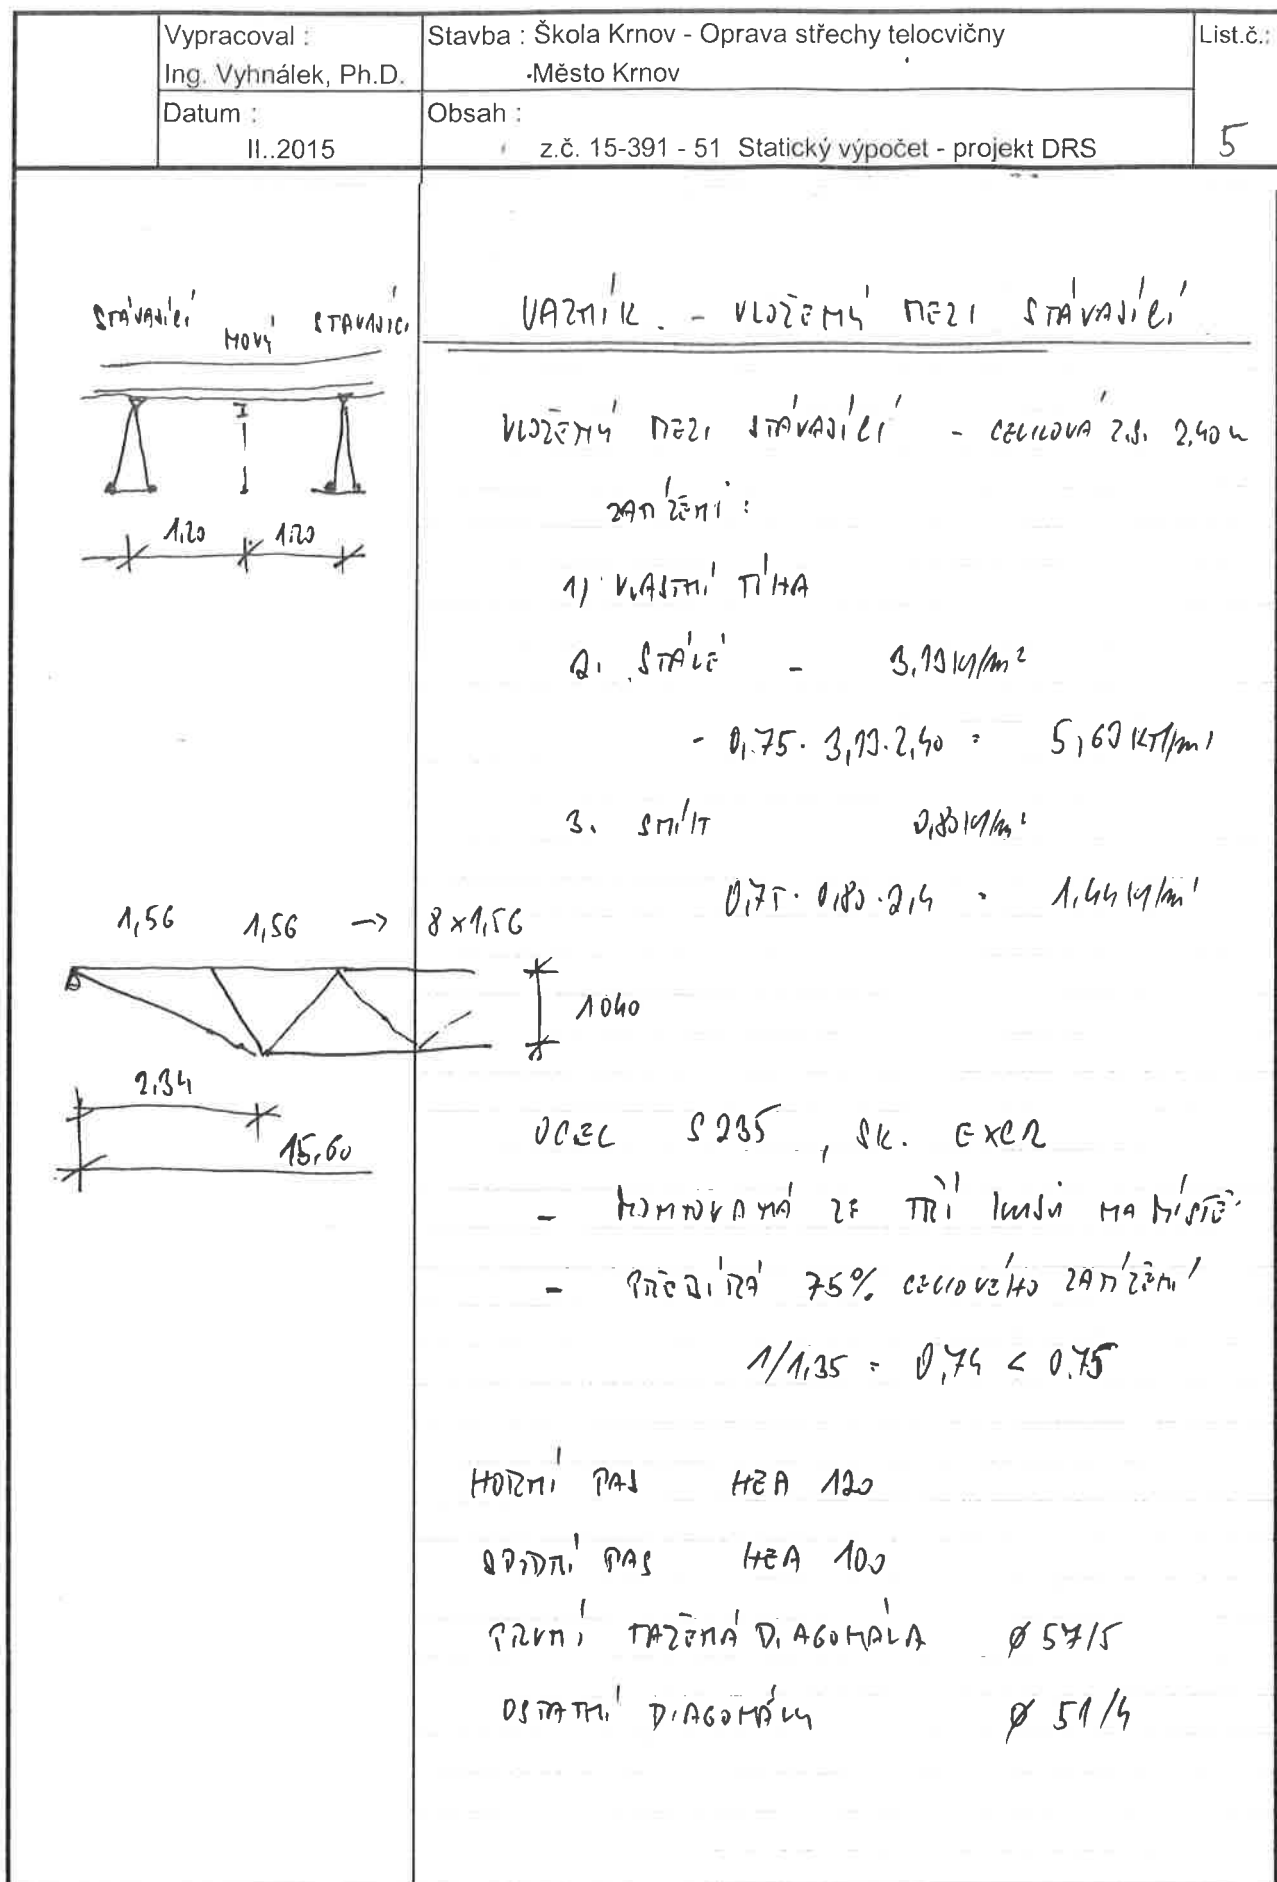 Vypracoval :
Ing. Vyhnálek, Ph.D.
Stavba : Škola Krnov - Oprava střechy telocvičny
Město Krnov
List.č.:
Datum :
II..2015
Obsah :
z.č. 15-391 - 51 Statický výpočet - projekt DRS
5
STÁVAJÍCÍ NOVÝ STÁVAJÍCÍ
1,20 1,20
VAZNÍK. - VLOŽENÝ MEZI STÁVAJÍCÍ
VLOŽENÝ MEZI STÁVAJÍCÍ - CELKOVÁ Z.Š. 2,40 m
ZATÍŽENÍ :
1) VLASTNÍ TÍHA
2. STÁLÉ - 3,13 kN/m²
- 0,75 · 3,13 · 2,40 = 5,63 kN/m'
3. SNÍH 0,80 kN/m²
0,75 · 0,80 · 2,4 = 1,44 kN/m'
1,56 1,56 → 8×1,56
1040
2,34
15,60
OCEL S235 , SK. EXC2
- MONTOVANÁ ZE TŘÍ KUSŮ NA MÍSTĚ
- PŘEBÍRÁ 75% CELKOVÉHO ZATÍŽENÍ
1/1,35 = 0,74 < 0,75
HORNÍ PAS HEA 120
SPODNÍ PAS HEA 100
PRVNÍ TAŽENÁ DIAGONÁLA ø 57/5
OSTATNÍ DIAGONÁLY ø 51/4